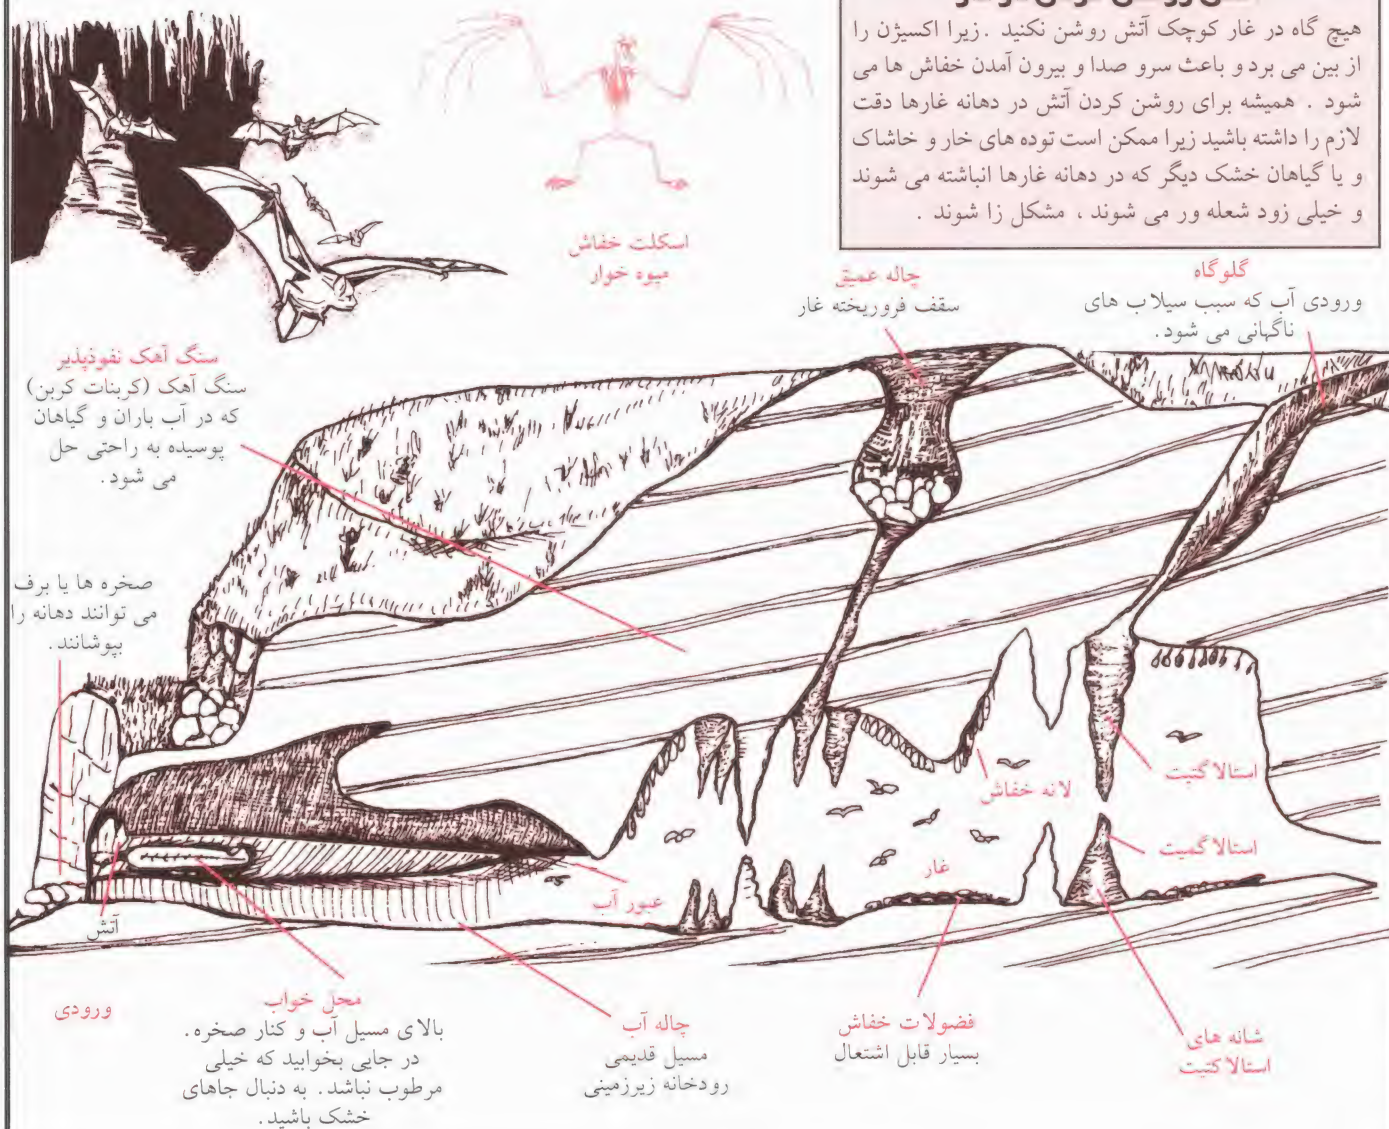 هیچ گاه در غار کوچک آتش روشن نکنید . زیرا اکسیژن را
از بین می برد و باعث سرو صدا و بیرون آمدن خفاش ها می
شود . همیشه برای روشن کردن آتش در دهانه غارها دقت
لازم را داشته باشید زیرا ممکن است توده های خار و خاشاک
و یا گیاهان خشک دیگر که در دهانه غارها انباشته می شوند
و خیلی زود شعله ور می شوند ، مشکل زا شوند .
اسکلت خفاش
میوه خوار
گلوگاه
ورودی آب که سبب سیلاب های
ناگهانی می شود.
چاله عمیق
سقف فروریخته غار
سنگ آهک نفوذپذیر
سنگ آهک (کربنات کربن)
که در آب باران و گیاهان
پوسیده به راحتی حل
می شود.
صخره ها یا برف
می توانند دهانه را
بپوشانند.
استالاکتیت
لانه خفاش
استالاگمیت
غار
عبور آب
آتش
ورودی
محل خواب
بالای مسیل آب و کنار صخره.
در جایی بخوابید که خیلی
مرطوب نباشد. به دنبال جاهای
خشک باشید.
چاله آب
مسیل قدیمی
رودخانه زیرزمینی
فضولات خفاش
بسیار قابل اشتعال
شانه های
استالاکتیت